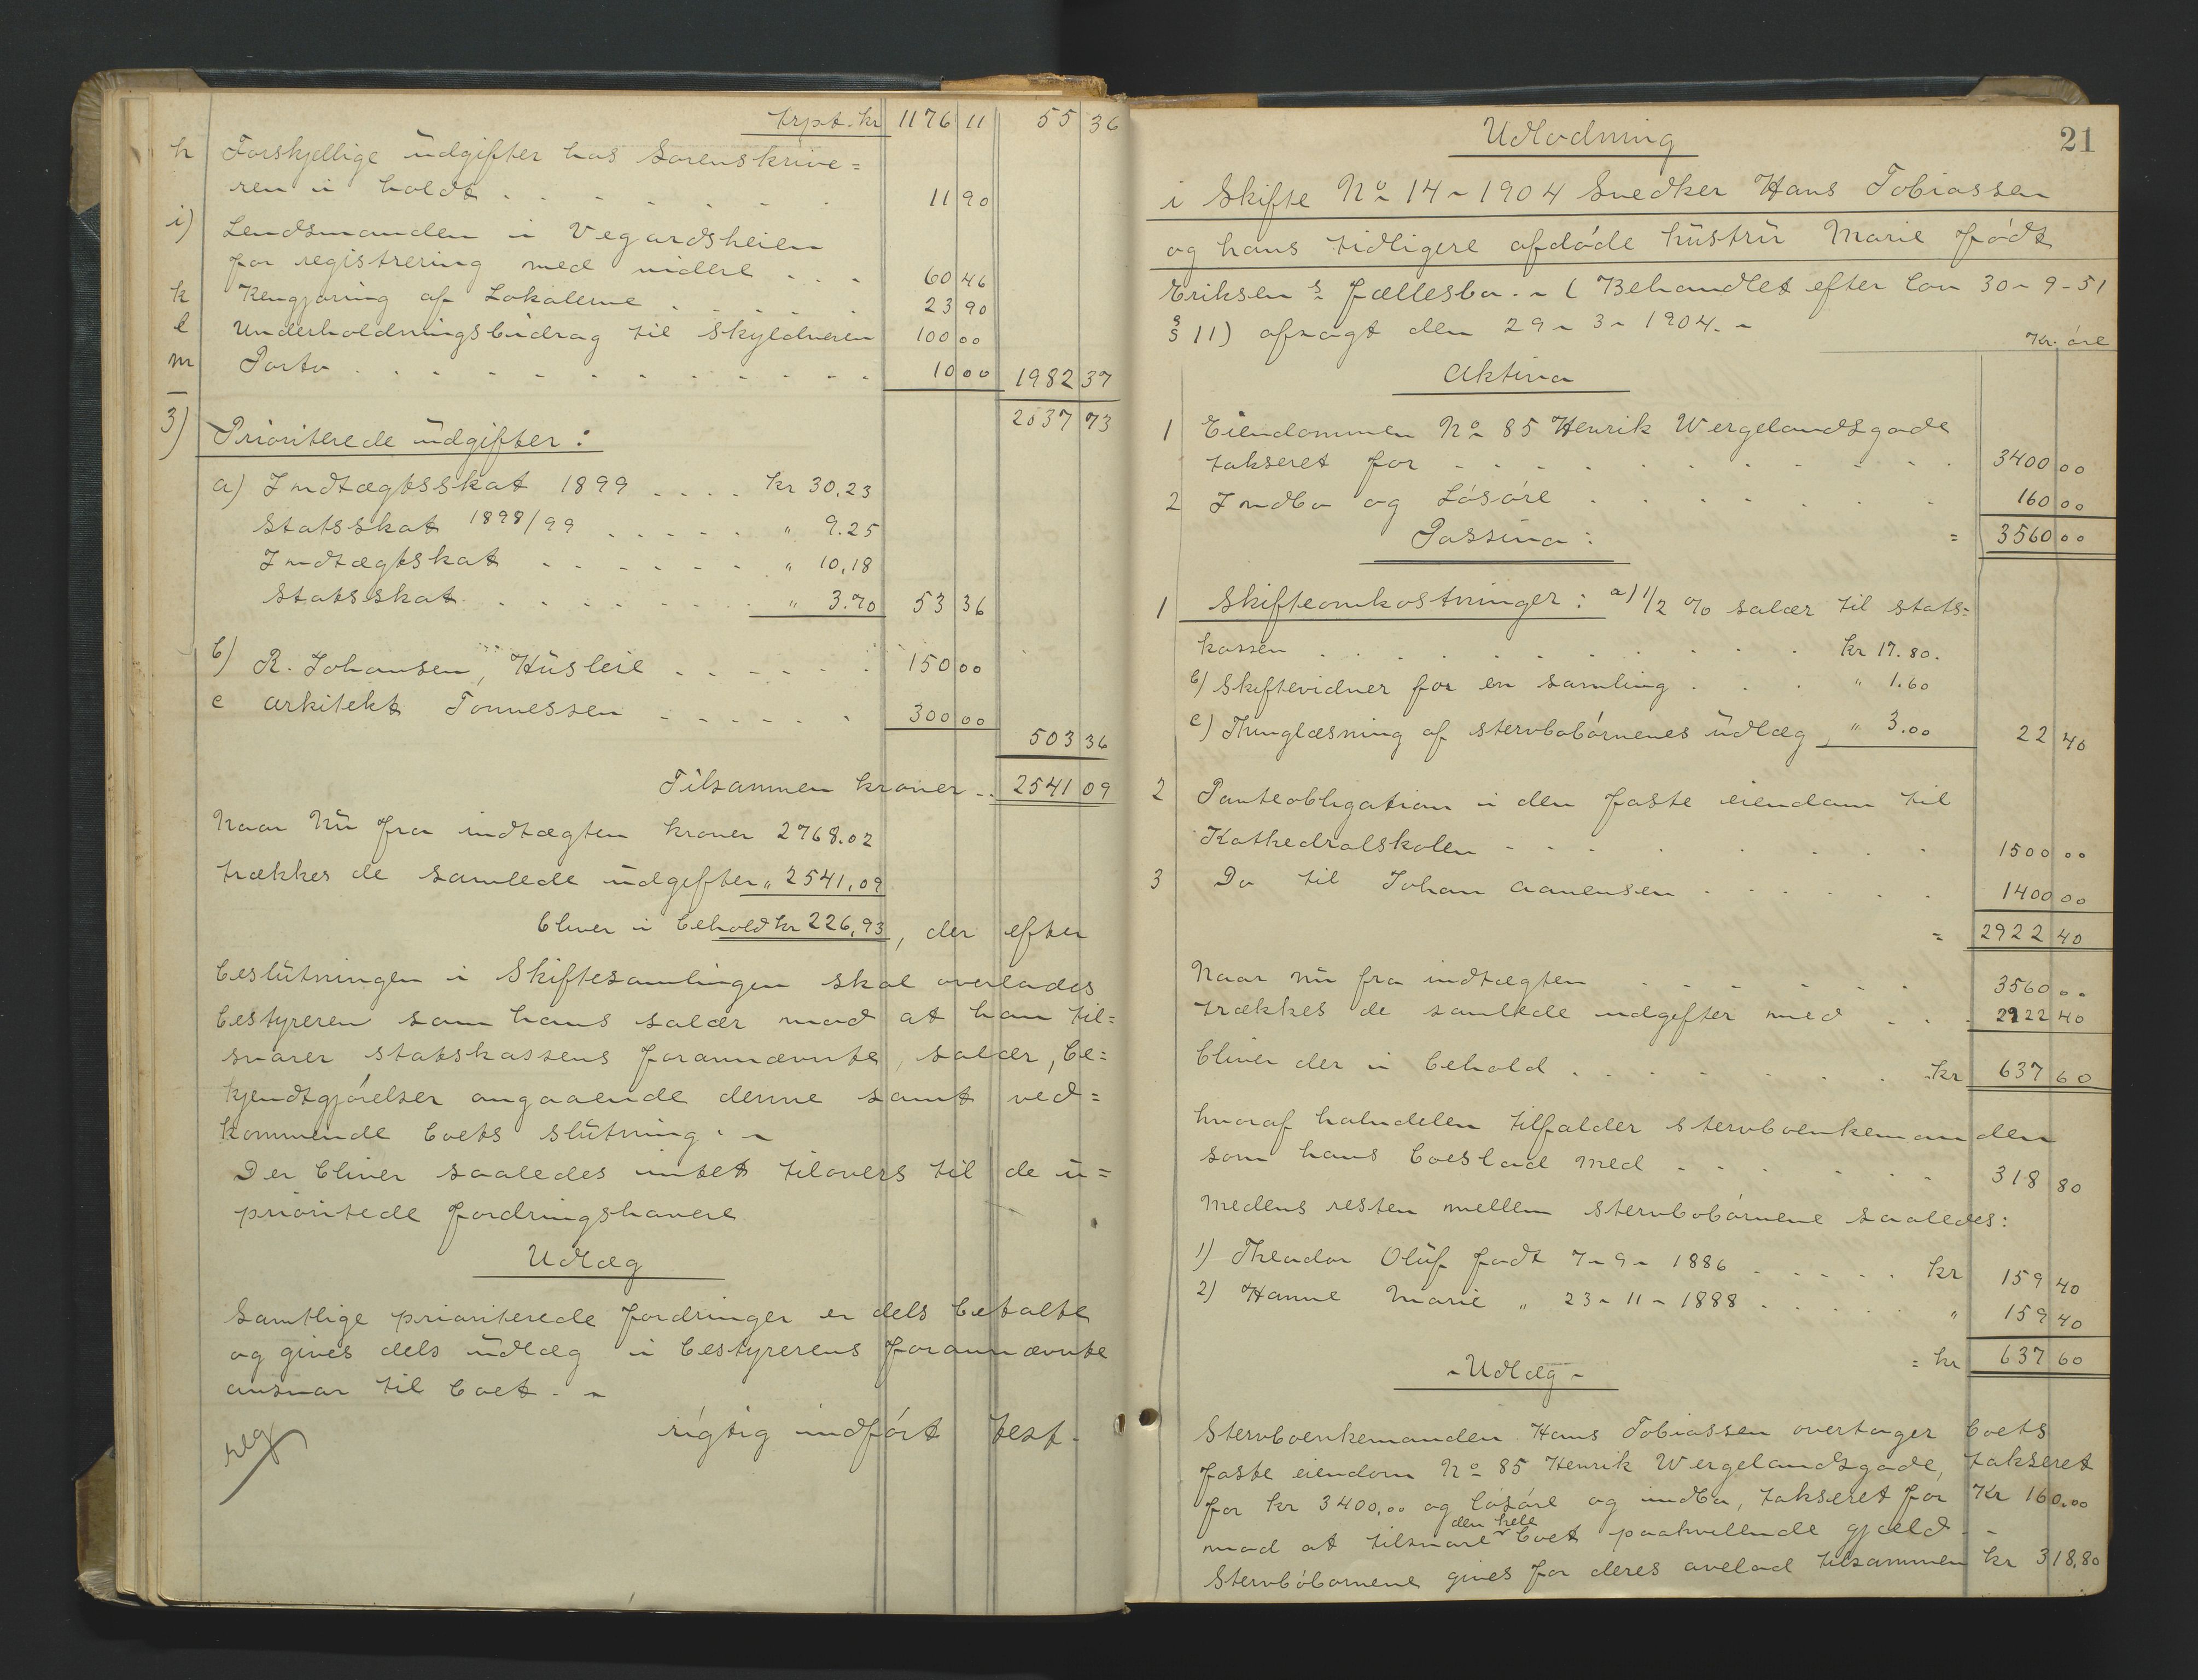 trpt. kr 1176 11 55 36
h Forskjellige udgifter hos Sorenskrive=
ren i holdt . . . . . . 11 90
i) Lendsmanden i Vegardsheien
for registrering med videre . . . 60 46
k Rengjøring af Lokalerne . . . . 23 90
l Underholdningsbidrag til Skyldneren 100 00
m Porto . . . . . . . . . . 10 00 1982 37
2037 73
3) Prioriterede udgifter:
a) Indtægtsskat 1899 . . . . kr 30,23
Statsskat 1898/99 . . . . . " 9.25
Indtægtskat . . . . . . " 10,18
Statsskat . . . . . . . . " 3.70 53 36
b) R. Johansen, Husleie . . . . . 150 00
c Arkitekt Tonnessen . . . . . . 300 00
503 36
Tilsammen kroner .. 2541 09
Naar Nu fra indtægten kroner 2768.02
trækkes de samlede udgifter " 2541,09
bliver i behold kr 226,93, der efter
beslutningen i Skiftesamlingen skal overlades
bestyreren som hans salær mod at han til=
svarer statskassens forannævnte, salær, be=
kjendtgjørelser angaaende denne samt ved=
kommende boets slutning. -
Der bliver saaledes intet tilovers til de u=
prioritede fordringshavere
Udlæg
Samtlige prioriterede fordringer er dels betalte
og gives dels udlæg i bestyrerens forannævnte
ansvar til boet. -
rigtig indført test.
21
Udlodning
i Skifte No 14 - 1904 Snedker Hans Tobiassen
og hans tidligere afdøde hustru Marie født
Eriksen s fællesbo. - ( Behandlet efter lov 30 - 9 - 51
§ 11) afsagt den 29 - 3 - 1904. -
Kr. øre
Aktiva
1 Eiendommen No 85 Henrik Wergelandsgade
takseret for - - - . . . . . . . 3400 00
2 Indbo og Løsøre . . . . . . . 160 00
Passiva: = 3560 00
1 Skifteomkostninger: a) 1/2 % salær til stats=
kassen . . . . . . . . . kr 17.80.
b) Skiftevidner for en samling . . . " 1.60
c) Thinglæsning af stervbobørnenes udlæg, " 3.00 22 40
2 Panteobligation i den faste eiendom til
Kathedralskolen - - - . . . . . 1500 00
3 Do til Johan Aanensen . . . . . . 1400 00
= 2922 40
Naar nu fra indtægten . . . . . . 3560 00
trækkes de samlede udgifter med . . . 2922 40
bliver der i behold . . . . . . . . kr 637 60
hvoraf halvdelen tilfalder stervboenkemanden
som hans boeslod med . . . . . . . 318 80
medens resten mellem stervbobørnene saaledes:
1) Theodor Oluf født 7 - 9 - 1886 . . . . . kr 159 40
2) Hanne Marie " 23 - 11 - 1888 . . . . . " 159 40
= kr 637 60
- Udlæg -
Stervboenkemanden Hans Tobiassen overtager boets
faste eiendom No 85 Henrik Wergelandsgade, takseret
for kr 3400,00 og løsøre og indbo, takseret for Kr 160.00
mod at tilsvare den hele boet paahvilende gjæld. -
Stervbobørnene gives for deres arvelod tilsammen kr 318,80